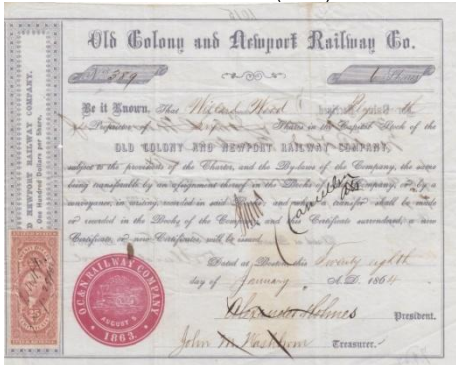 Old Colony and Newport Railway Co.
No. 589
Be it Known, That Willard Wood of Plymouth
is Proprietor of Shares in the Capital Stock of the
OLD COLONY AND NEWPORT RAILWAY COMPANY,
subject to the provisions of the Charter, and the By-laws of the Company, the same
being transferable by an assignment thereof in the Books of the Company, or by a
conveyance, in writing, recorded in said Books; and when a transfer shall be made
or recorded in the Books of the Company and this Certificate surrendered, a new
Certificate or new Certificates will be issued.
Cancelled
Dated at Boston this Twenty eighth
day of January A.D. 1864
Alexander Holmes President.
John M. Washburn Treasurer.
NEWPORT RAILWAY COMPANY.
One Hundred Dollars per Share.
O.C.&N. RAILWAY COMPANY
AUGUST
1863.